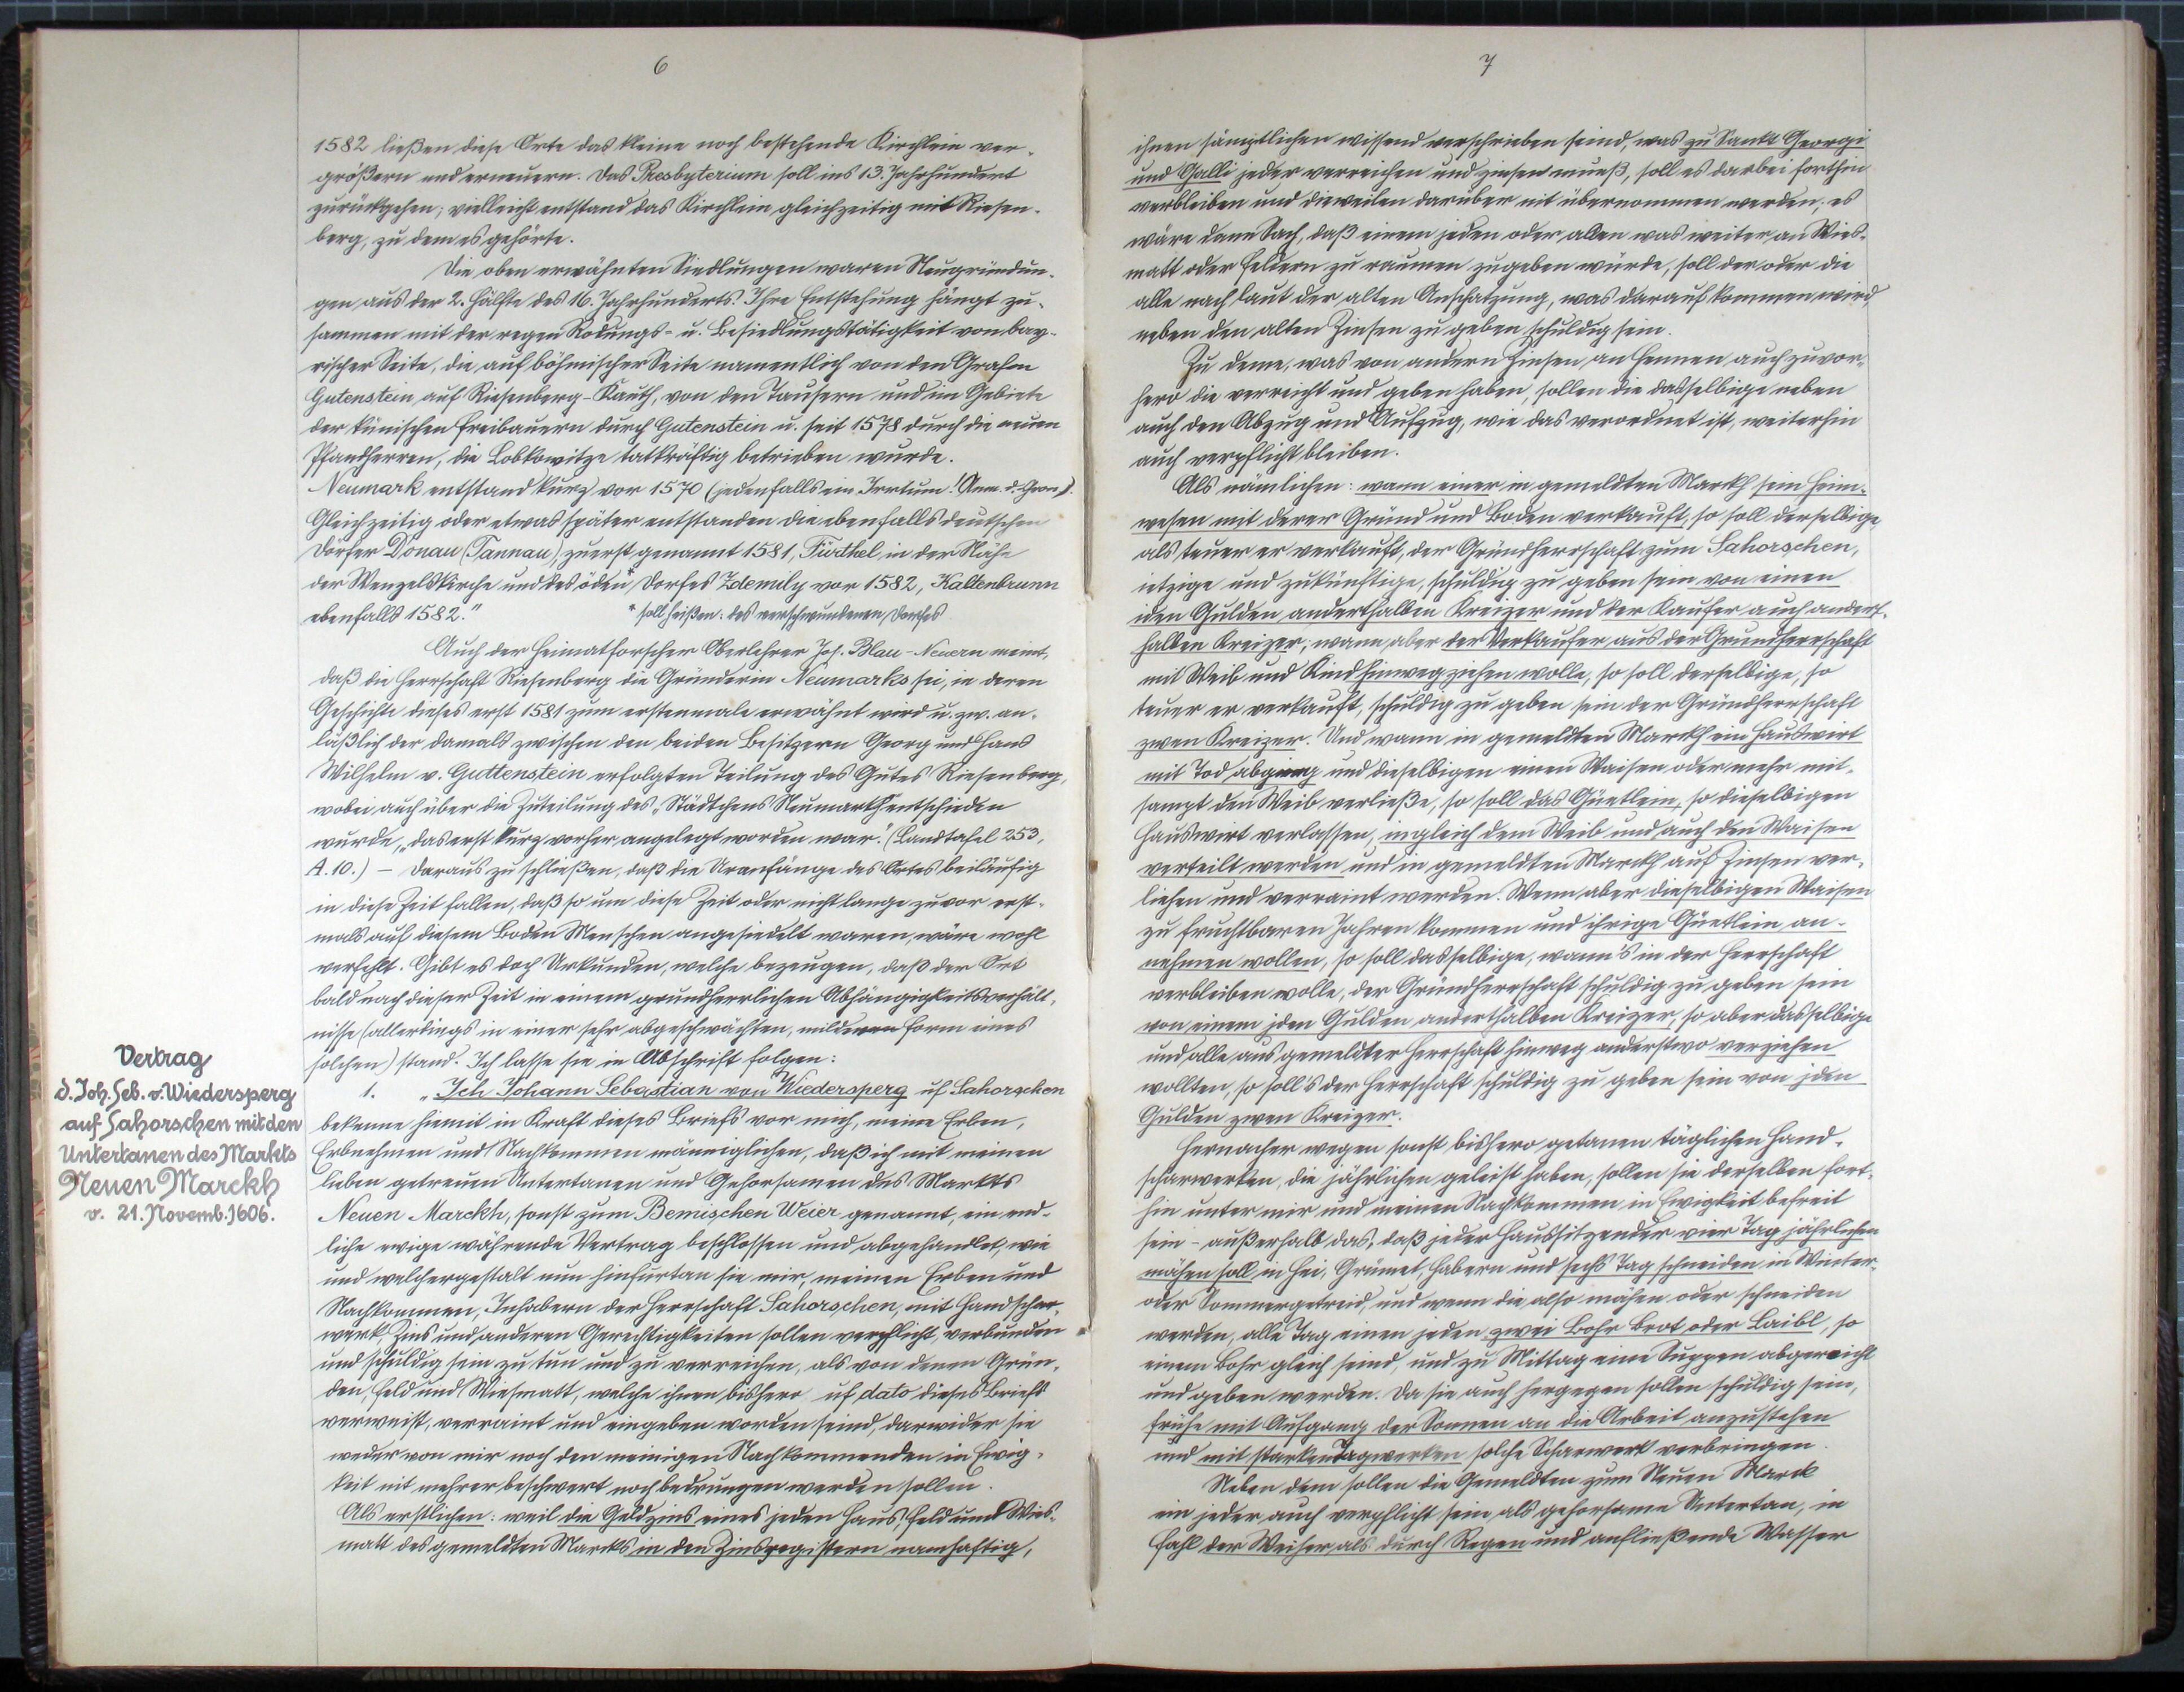 6
1582 ließen diese Orte das kleine noch bestehende Kirchlein ver-
größern und erneuern. Das Presbyterium soll ins 13. Jahrhundert
zurückgehen; vielleicht entstand das Kirchlein gleichzeitig mit Riesen-
berg, zu dem es gehörte.
Die oben erwähnten Siedlungen waren Neugründun-
gen aus der 2. Hälfte des 16. Jahrhunderts. Ihre Entstehung hängt zu-
sammen mit der regen Rodungs- u. Besiedlungstätigkeit von bay-
rischer Seite, die auf böhmischer Seite namentlich von den Grafen
Gutenstein auf Riesenberg-Kauth, von den Tausern und im Gebiete
der künischen Freibauern durch Gutenstein u. seit 1578 durch die neuen
Pfandherren, die Lobkowitze tatkräftig betrieben wurde.
Neumark entstand kurz vor 1570 (jedenfalls ein Irrtum! Anm. d. Chron.).
Gleichzeitig oder etwas später entstanden die ebenfalls deutschen
Dörfer Donau (Tannau), zuerst genannt 1581, Fürthel in der Nähe
der Wenzelskirche und des öden* Dorfes Zdemily vor 1582, Kaltenbrunn
ebenfalls 1582."
* soll heißen: des verschwundenen Dorfes
Auch der Heimatforscher Oberlehrer Jos. Blau-Neuern meint,
daß die Herrschaft Riesenberg die Gründerin Neumarks sei, in deren
Geschichte dieses erst 1581 zum erstenmale erwähnt wird u. zw. an-
läßlich der damals zwischen den beiden Besitzern Georg und Hans
Wilhelm v. Guttenstein erfolgten Teilung des Gutes Riesenberg,
wobei auch über die Zuteilung des „Städtchens Neumarkh" entschieden
wurde, „das erst kurz vorher angelegt worden war." (Landtafel 253,
A. 10.) – Daraus zu schließen, daß die Uranfänge des Ortes beiläufig
in diese Zeit fallen, daß so um diese Zeit oder nicht lange zuvor erst-
mals auf diesem Boden Menschen angesiedelt waren, wäre wohl
verfehlt. Gibt es doch Urkunden, welche bezeugen, daß der Ort
bald nach dieser Zeit in einem grundherrlichen Abhängigkeitsverhält-
nisse (allerdings in einer sehr abgeschwächten, milderen Form eines
solchen) stand. Ich lasse sie in Abschrift folgen:
Vertrag
d. Joh. Seb. v. Wiedersperg
auf Sahorschen mit den
Untertanen des Markts
Neuen Marckh
v. 21. Novemb. 1606.
1. „Ich Johann Sebastian von Wiedersperg uf Sahorschen
bekenne hiemit in Kraft dieses Briefs vor mich, meine Erben,
Erbnehmen und Nachkommen männiglichen, daß ich mit meinen
lieben getreuen Untertanen und Gehorsamen des Markts
Neuen Marckh, sonst zum Bemischen Weier genannt, ein end-
liche ewige währende Vertrag beschlossen und abgehandlet, wie
und welchergestalt nun hinfurtan sie mir, meinen Erben und
Nachkommen, Inhabern der Herrschaft Sahorschen, mit Handschar-
werk, Zins und anderen Gerechtigkeiten sollen verpflicht, verbunden
und schuldig sein zu tun und zu verreichen, als von denen Grün-
den, Feld und Wiesmatt, welche ihnen bishero uf dato dieses Briefs
verweist, verraint und eingeben worden seind, darwider sie
weder von mir noch den meinigen Nachkommenden in Ewig-
keit nit mehrer beschwert noch bedrungen werden sollen.
Als erstlichen: weil die Geldzins eines jeden Haus, Feld und Wies-
matt des gemeldten Markts in den Zinsregistern namhaftig,
7
ihnen sämptlichen wissend verschrieben seind, was zu Sankt Georgi
und Galli jeder verreichen und zinsen mueß, soll es darbei forthin
verbleiben und dieweilen darüber nit übernommen werden, es
wäre dann Sach, daß einem jeden oder allen was weiter an Wies-
matt oder Feldern zu raumen zugeben würde, soll der oder die
alle nach laut der alten Anschatzung, was darauf kommen wird,
neben den alten Zinsen zu geben schuldig sein.
Zu deme, was von andern Zinsen an Hennen auch zuvor-
hero die verreicht und geben haben, sollen die dasselbige neben
auch den Abzug und Aufzug, wie das verordnet ist, weiterhin
auch verpflicht bleiben.
Als nämlichen: wann einer in gemeldten Markh sein Heim-
wesen mit derer Gründ und Boden verkauft, so soll derselbige
als teuer er verkauft, der Gründherrschaft zum Sahorschen,
ietzige und zukünftige, schuldig zu geben sein von einen
iden Gulden anderthalben Kreizer und der Kaufer auch andert-
halben Kreizer; wann aber der Verkaufer aus der Grundherrschaft
mit Weib und Kind hinwegziehen wolle, so soll derselbige, so
teuer er verkauft, schuldig zu geben sein der Gründherrschaft
zwen Kreizer. Und wann in gemeldten Markh ein Hauswirt
mit Tod abgieng und dieselbigen einen Waisen oder mehr mit-
sampt den Weib verließe, so soll das Güetlein, so dieselbigen
Hauswirt verlassen, ingleich dem Weib und auch den Waisen
verteilt werden und in gemeldten Markh auf Zinsen ver-
liehen und verraint werden. Wenn aber dieselbigen Waisen
zu fruchtbaren Jahren kommen und ihrige Güetlein an-
nehmen wollen, so soll dasselbige, wann's in der Herrschaft
verbleiben wolle, der Gründherrschaft schuldig zu geben sein
von einem jden Gulden anderthalben Kreizer, so aber dasselbige
und alle aus gemeldter Herrschaft hinweg anderstwo verziehen
wollten, so soll's der Herrschaft schuldig zu geben sein von jden
Gulden zwen Kreizer.
Hernacher wegen sonst bishero getanen täglichen Hand-
scharwerken, die jährlichen geleist haben, sollen sie derselben fort-
hin unter mir und meinen Nachkommen in Ewigkeit befreit
sein – außerhalb das, daß jeder Haussitzender vier Tag jährlichen
mähen soll in Hei, Grümet, Habern und sechs Tag schneiden in Winter-
oder Sommergetreid, und wenn die also mähen oder schneiden
werden, alle Tag einen jeden zwei Lohr Brot oder Laibl, so
einem Lohr gleich seind, und zu Mittag eine Suppen abgereicht
und geben werden. Da sie auch hergegen sollen schuldig sein,
frühe mit Aufgang der Sonnen an die Arbeit anzustehen
und mit starken Tagwerken solche Scharwerk verbringen.
Neben dem sollen die Gemeldten zum Neuen Marck
ein jeder auch verpflicht sein als gehorsame Untertan, in
Fahl der Weiher als durch Regen und anfließende Wasser